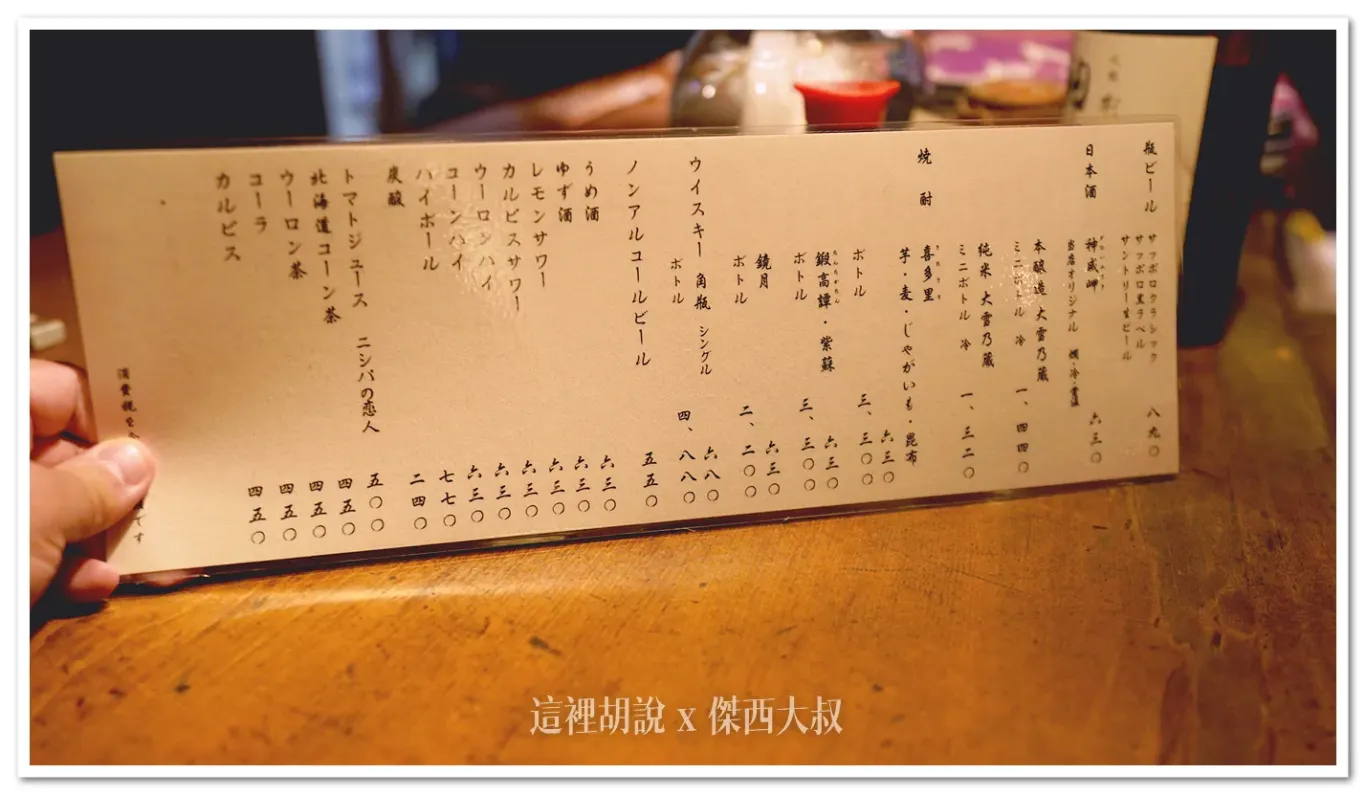 瓶ビール サッポロクラシック 八九〇
サッポロ黒ラベル
サントリー生ビール
日本酒 神威岬 六三〇
当店オリジナル 燗・冷・常温
本醸造 大雪乃蔵
ミニボトル 冷 一、四四〇
純米 大雪乃蔵
ミニボトル 冷 一、三二〇
焼酎 喜多里
芋・麦・じゃがいも・昆布 六三〇
ボトル 三、三〇〇
鍛高譚・紫蘇 たんたかたん 六三〇
ボトル 三、三〇〇
鏡月 六三〇
ボトル 二、二〇〇
ウイスキー 角瓶 シングル 六八〇
ボトル 四、八八〇
ノンアルコールビール 五五〇
うめ酒 六三〇
ゆず酒 六三〇
レモンサワー 六三〇
カルピスサワー 六三〇
ウーロンハイ 六三〇
コーンハイ 六三〇
ハイボール 七七〇
炭酸 二四〇
トマトジュース ニシパの恋人 五〇〇
北海道コーン茶 四五〇
ウーロン茶 四五〇
コーラ 四五〇
カルピス 四五〇
消費税 です
這裡胡說 x 傑西大叔